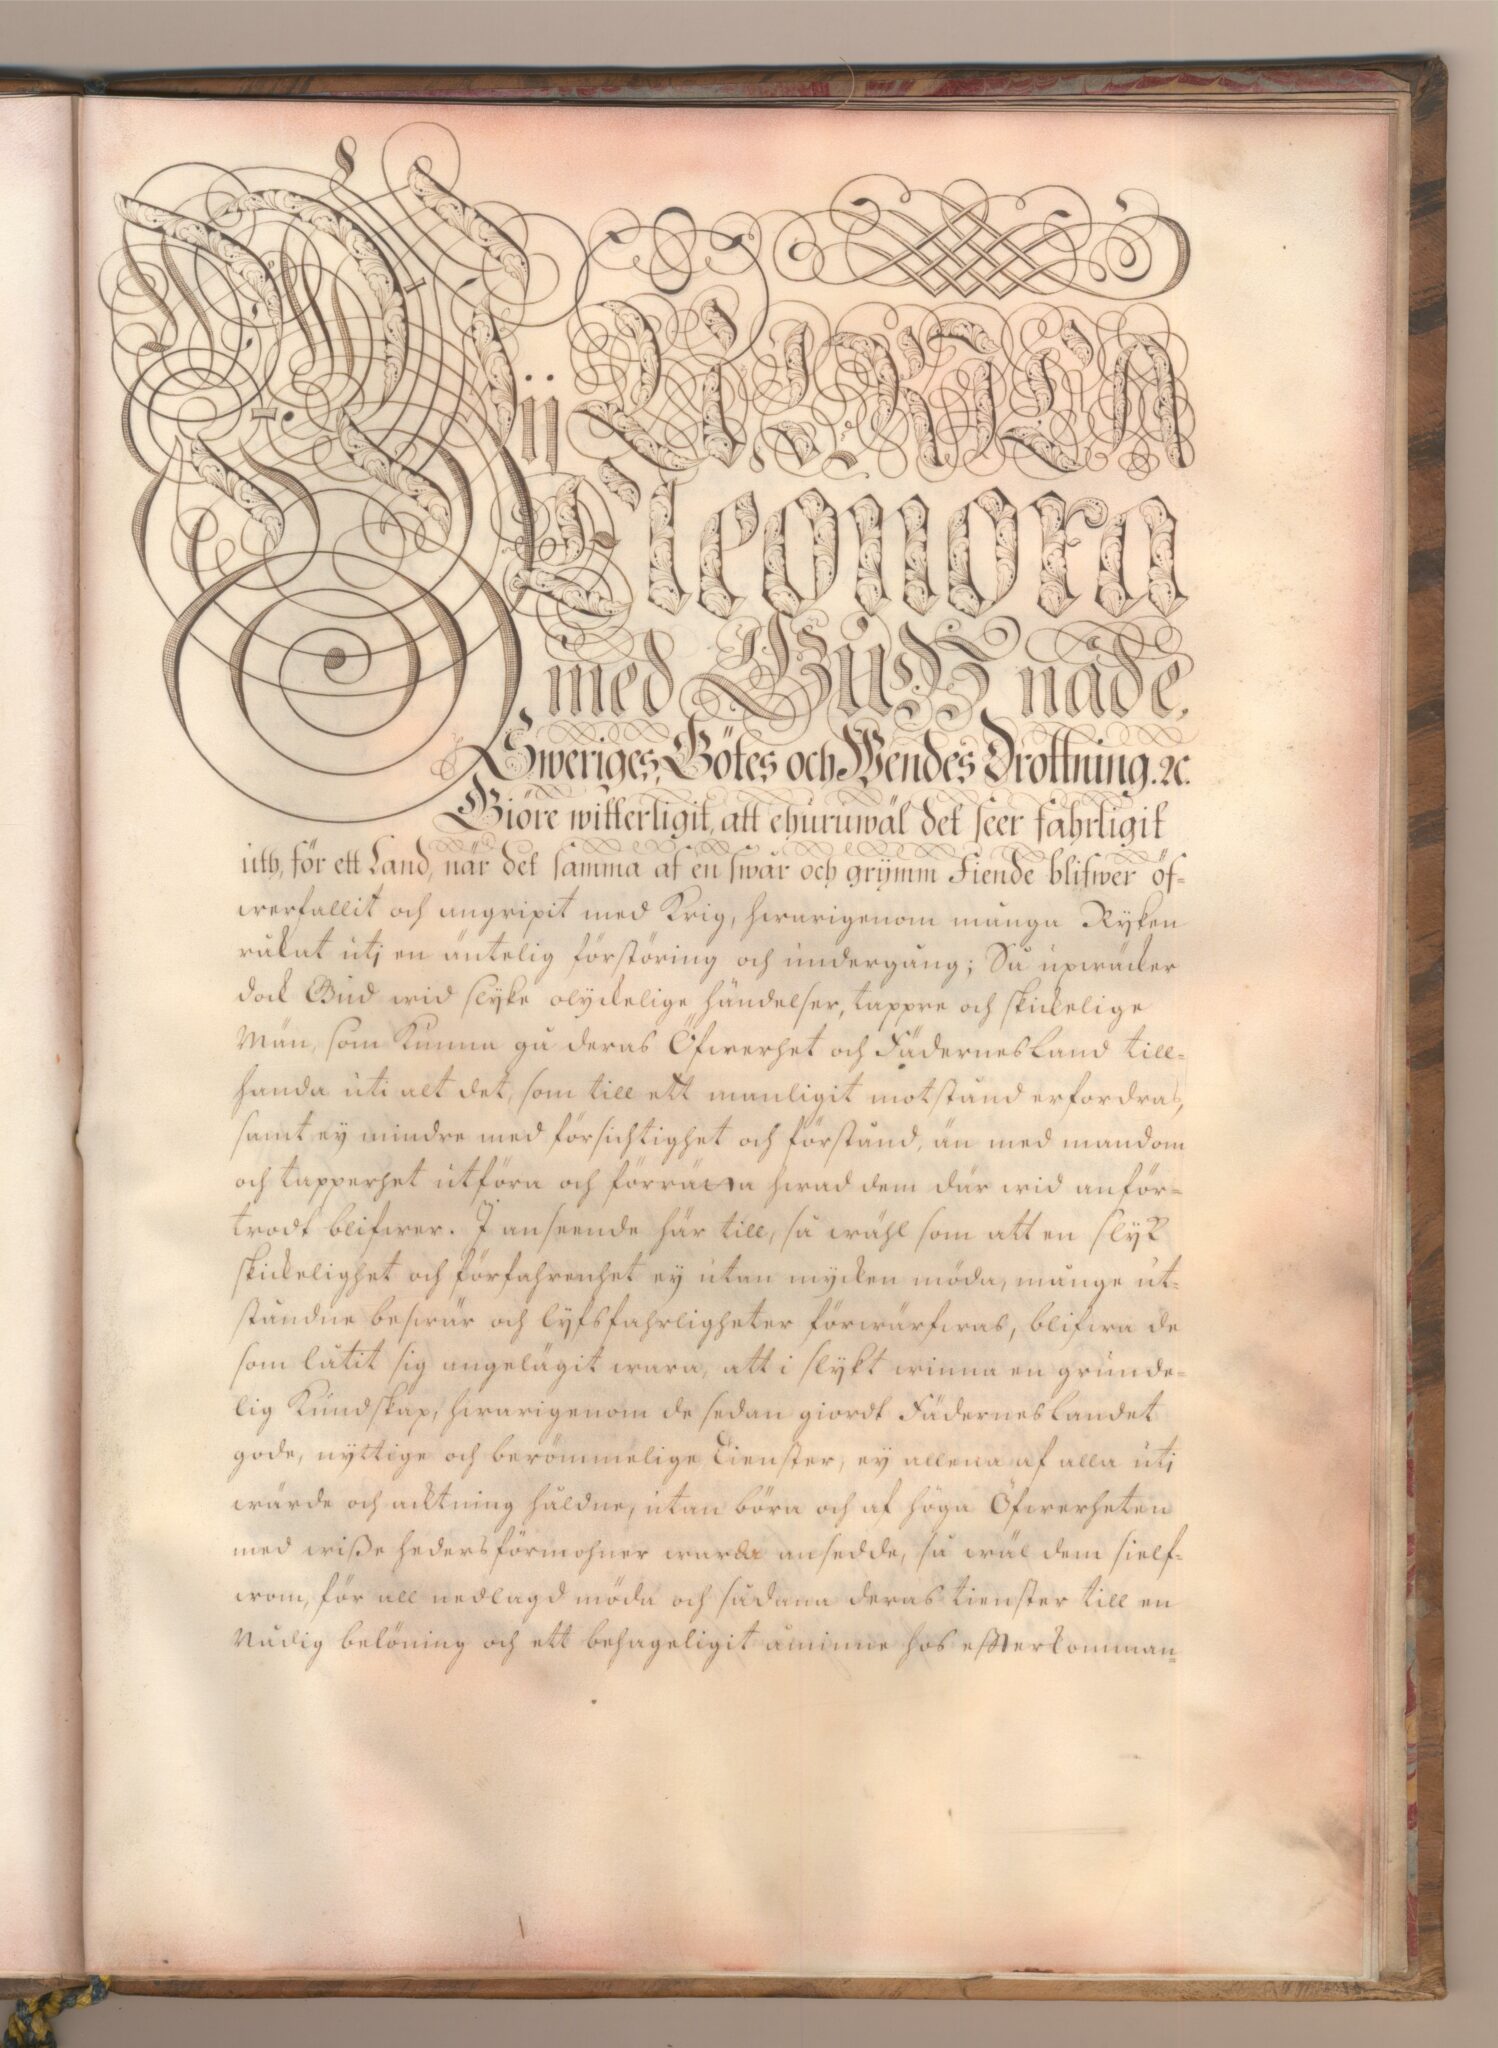 Wij ULRICA
Eleonora
med GUDZ nåde,
Sweriges, Götes och Wendes Drottning. ꝛc.
Giöre witterligit, att ehuruwäl det seer fahrligit
uth, för ett Land, när det samma af en swår och grymm Fiende blifwer öf-
werfallit och angripit med Krig, hwarigenom många Ryken
råkat utj en äntelig förstöring och undergång; Så upwäcker
dock Gud wid slyke olyckelige händelser, tappre och skickelige
Män, som kunna gå deras Öfwerhet och Fädernesland till-
handa uti alt det, som till ett manligit motstånd erfordras,
samt ey mindre med försichtighet och förstånd, än med mandom
och tapperhet utföra och förrätta hwad dem där wid anför-
trodt blifwer. I anseende här till, så wähl som att en slyk
skickelighet och förfahrenhet ey utan mycken möda, månge ut-
ståndne beswär och lyfsfahrligheter förwärfwas, blifwa de
som låtit sig angelägit wara, att i slykt winna en grunde-
lig Kundskap, hwarigenom de sedan giordt Fäderneslandet
gode, nyttige och berömmelige tienster, ey allena af alla utj
wärde och acktning håldne, utan böra och af höga Öfwerheten
med wiße hedersförmohner warda ansedde, så wäl dem sielf-
wom, för all nedlagd möda och sådana deras tienster till en
Nådig belöning och ett behageligit åminne hos effterkomman-